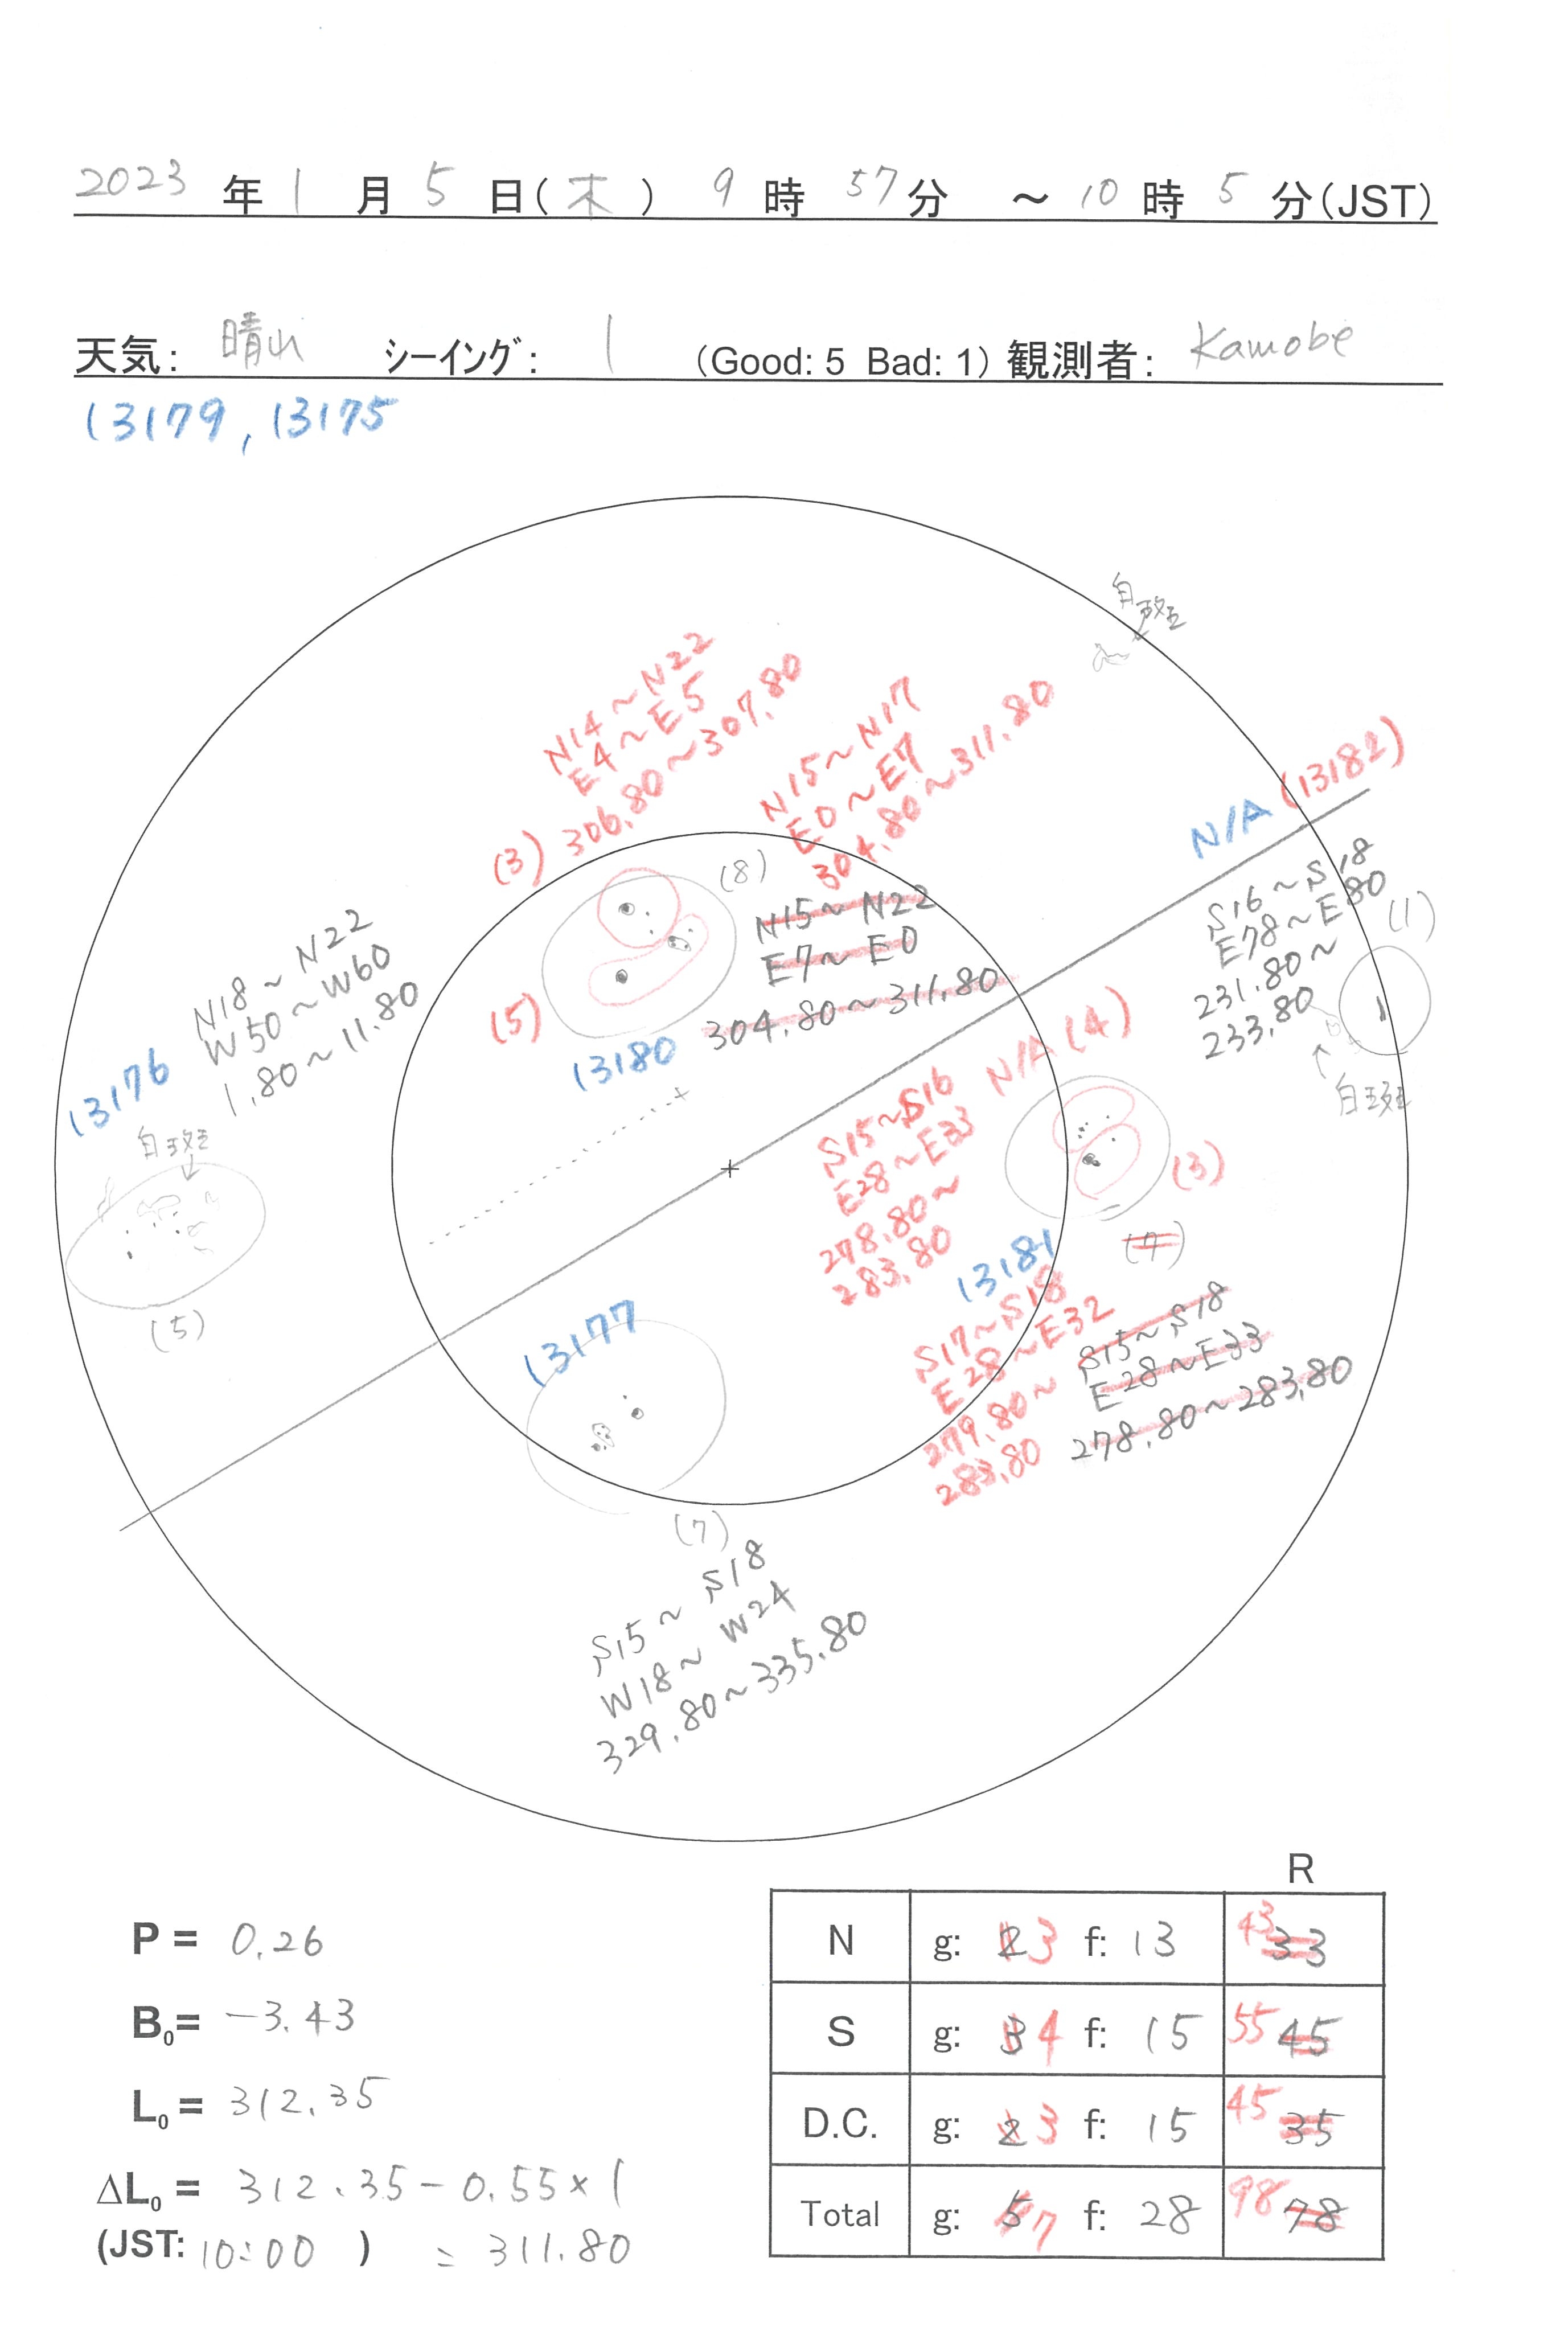 2023 年 1 月 5 日(木) 9 時 57 分 ~ 10 時 5 分(JST)
天気: 晴れ シーイング: 1 (Good: 5 Bad: 1) 観測者: Kamobe
13179, 13175
白斑
N14~N22
E4~E5
(3) 306.80~307.80
N15~N17
E0~E7
304.80~311.80
N/A (13182)
(8)
N15~N22
E7~E0
304.80~311.80
(5)
13180
S16~S18
E78~E80
231.80~
233.80
(1)
白斑
N18~N22
W50~W60
1.80~11.80
13176
白斑
(5)
N/A (4)
S15~S16
E28~E33
278.80~
283.80
(3)
(7)
13181
S17~S18
E28~E32
279.80~
283.80
S15~S18
E28~E33
278.80~283.80
13177
(7)
S15~S18
W18~W24
329.80~335.80
P = 0.26
B₀= -3.43
L₀ = 312.35
ΔL₀ = 312.35-0.55×1
(JST: 10:00 ) = 311.80
R
N g: 2 3 f: 13 43 33
S g: 3 4 f: 15 55 45
D.C. g: 2 3 f: 15 45 35
Total g: 5 7 f: 28 98 78